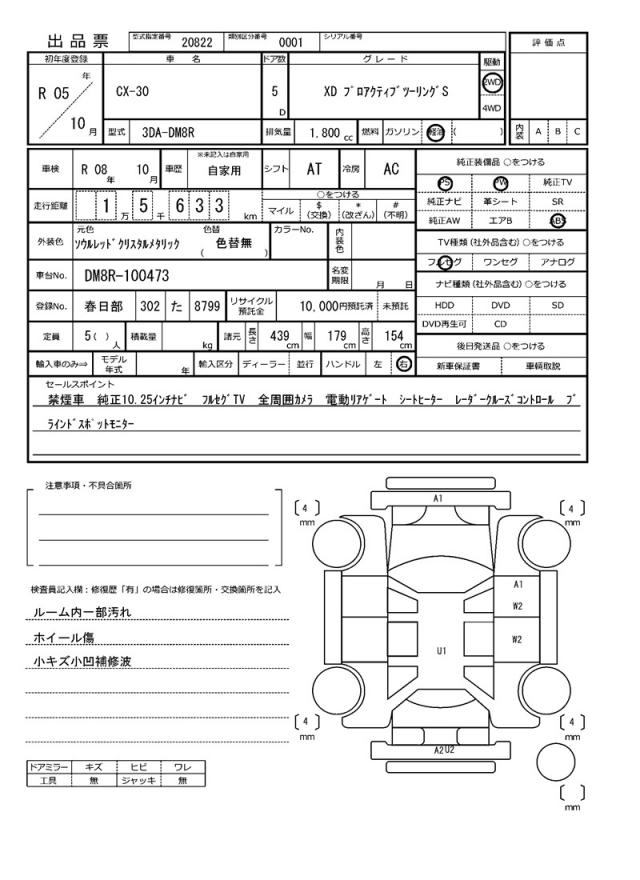 出品票 型式指定番号 20822 類別区分番号 0001 シリアル番号
評価点
初年度登録 車名 ドア数 グレード 駆動
R 05 年 10 月 CX-30 5 D XD プロアクティブツーリングS 2WD 4WD
型式 3DA-DM8R 排気量 1.800 cc 燃料 ガソリン 軽油 ( ) 内装 A B C
車検 R 08 年 10 月 車歴 ※未記入は自家用 自家用 シフト AT 冷房 AC
純正装備品 ○をつける
PS PW 純正TV
純正ナビ 革シート SR
純正AW エアB ABS
走行距離 1 万 5 千 6 3 3 km
○をつける
マイル $ (交換) * (改ざん) # (不明)
TV種類 (社外品含む) ○をつける
フルセグ ワンセグ アナログ
外装色 元色 ソウルレッドクリスタルメタリック 色替 ( 色替無 ) カラーNo. 内装色
ナビ種類 (社外品含む) ○をつける
HDD DVD SD
DVD再生可 CD
車台No. DM8R-100473 名変期限 月 日
登録No. 春日部 302 た 8799 リサイクル預託金 10,000円預託済 未預託
定員 5 ( ) 人 積載量 kg 諸元 長さ 439 cm 幅 179 cm 高さ 154 cm
後日発送品 ○をつける
新車保証書 車輌取説
輸入車のみ⇒ モデル年式 年 輸入区分 ディーラー 並行 ハンドル 左 右
セールスポイント
禁煙車 純正10.25インチナビ フルセグTV 全周囲カメラ 電動リアゲート シートヒーター レーダークルーズコントロール ブ
ラインドスポットモニター
注意事項・不具合箇所
検査員記入欄：修復歴「有」の場合は修復箇所・交換箇所を記入
ルーム内一部汚れ
ホイール傷
小キズ小凹補修波
ドアミラー キズ ヒビ ワレ
工具 無 ジャッキ 無
A1
4 mm
4 mm
A1
W2
W2
U1
4 mm
4 mm
A2U2
mm